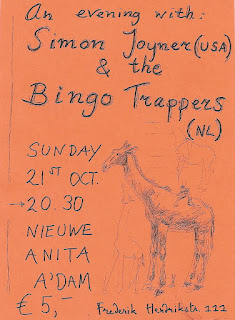 An evening with:
Simon Joyner (USA)
& the
Bingo Trappers
(NL)
SUNDAY
21ST OCT.
→ 20.30
NIEUWE
ANITA
A'DAM
€ 5,-
Frederik Hendrikstr. 111